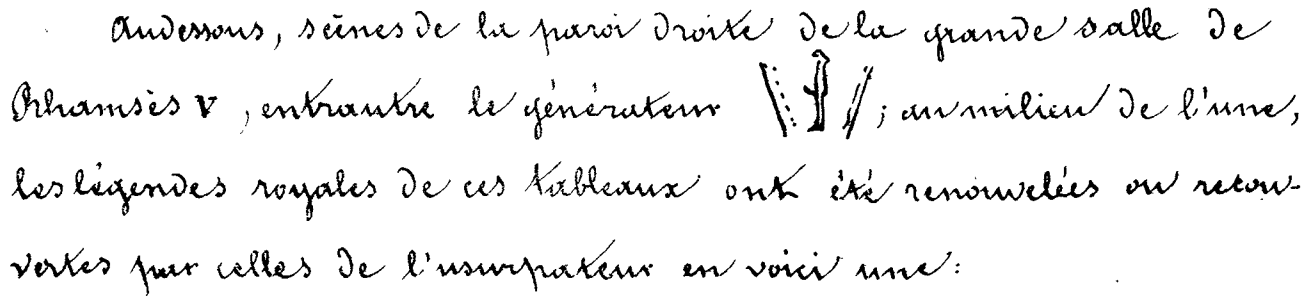 Audessous, scènes de la paroi droite de la grande salle de
Rhamsès V, entrautre le générateur ; au milieu de l'une,
les légendes royales de ces tableaux ont été renouvelées ou recou-
vertes par celles de l'usurpateur en voici une :